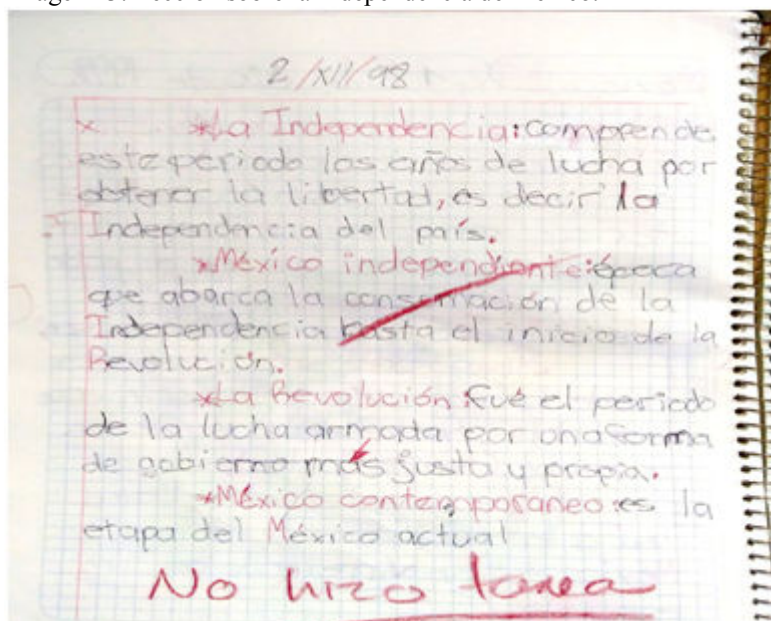 2/XII/98
x *La Independencia: comprende
este periodo los años de lucha por
obtener la libertad, es decir la
Independencia del país.
*México independiente: época
que abarca la consumación de la
Independencia hasta el inicio de la
Revolución.
*La Revolución: Fué el periodo
de la lucha armada por una forma
de gobierno más justa y propia.
*México contemporaneo: es la
etapa del México actual
No hizo tarea